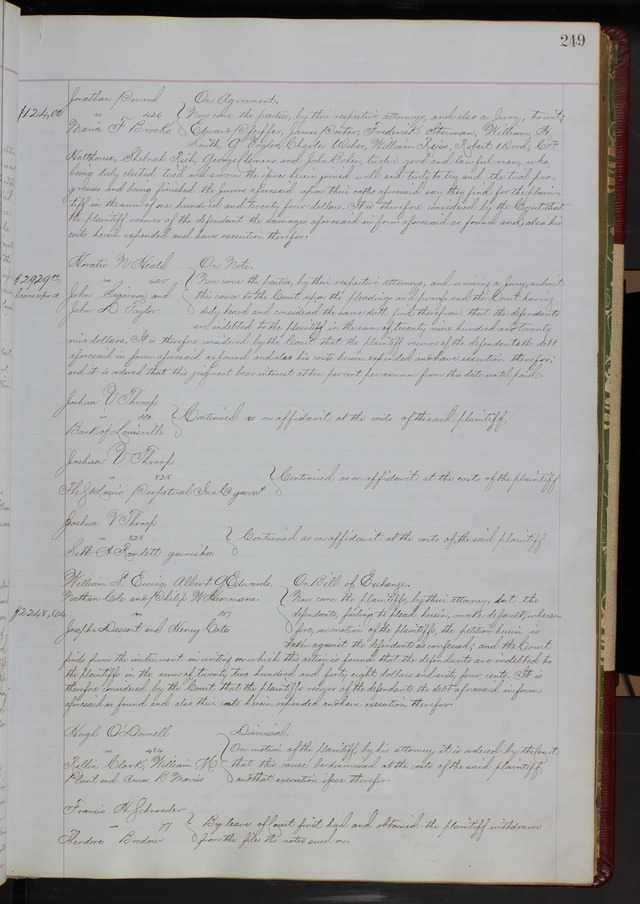 249
Jonathan Conrad On Agreement.
$124,00 vs 426 Now come the parties, by their respective attorneys, and also a Jury, to wit;
Maria F Brooks Edward Pfeiffer, James Porter, Frederick Sterman, William H
Smith, Charles Weber, William Reiss, Robert Wood,
Halthouse, George Owens and John Bolen, twelve good and lawful men, who,
being duly elected tried and sworn the issue herein joined well and truly to try and the trial pro-
gresses and being finished the Jurors aforesaid upon their oaths aforesaid say they find for the plain-
tiff in the sum of one hundred and twenty four dollars. It is therefore considered by the Court that
the plaintiff recover of the defendant the damages aforesaid in form aforesaid as found and also his
costs herein expended and have execution therefor.
Horatio N Heald On Note.
$2929.00 vs 425 Now come the parties, by their respective attorneys, and waiving a Jury, submit
John Sigerson and this cause to the Court upon the pleadings and proofs and the Court having
John D Taylor duly heard and considered the same doth find therefrom that the defendants
are indebted to the plaintiff in the sum of twenty nine hundred and twenty
nine dollars. It is therefore considered by the Court that the plaintiff recover of the defendants the debt
aforesaid in form aforesaid as found and also his costs herein expended and have execution therefor;
and it is ordered that this judgment bear interest at ten per cent per annum from this date until paid.
Joshua V Throop
vs 330 Continued as on affidavit at the costs of the said plaintiff,
Bank of Louisville
Joshua V Throop
vs 328 Continued as on affidavit at the costs of the plaintiff
The St Louis Perpetual Ins Co garn't
Joshua V Throop
vs 328 Continued as on affidavit, at the costs of the said plaintiff
Seth A Ranlett garnishee
William L Ewing, Albert G Edwards, On Bill of Exchange.
Nathan Cole and Philip W Hermans. Now come the plaintiffs, by their attorney, but the
$2248,64 vs 517 defendants, failing to plead herein, make default, where-
Joseph Dessert and Henry Cates fore, on motion of the plaintiffs, the petition herein is
taken against the defendants as confessed; and the Court
finds from the instrument in writing on which this action is found that the defendants are indebted to
the plaintiff in the sum of twenty two hundred and forty eight dollars and sixty four cents. It is
therefore considered by the Court that the plaintiffs recover of the defendants the debt aforesaid in form
aforesaid as found and also their costs herein expended and have execution therefor.
Hugh O'Donnell Dismissal.
vs 484 On motion of the plaintiff, by his attorney, it is ordered by the Court
Clark, William M that this cause be dismissed at the costs of the said plaintiff,
Plant and Amos B Morris and that execution issue therefor.
Francis H Schroeder
vs 77 By leave of Court first had and obtained the plaintiff withdraws
Theodore Bredow from the files the notes sued on.